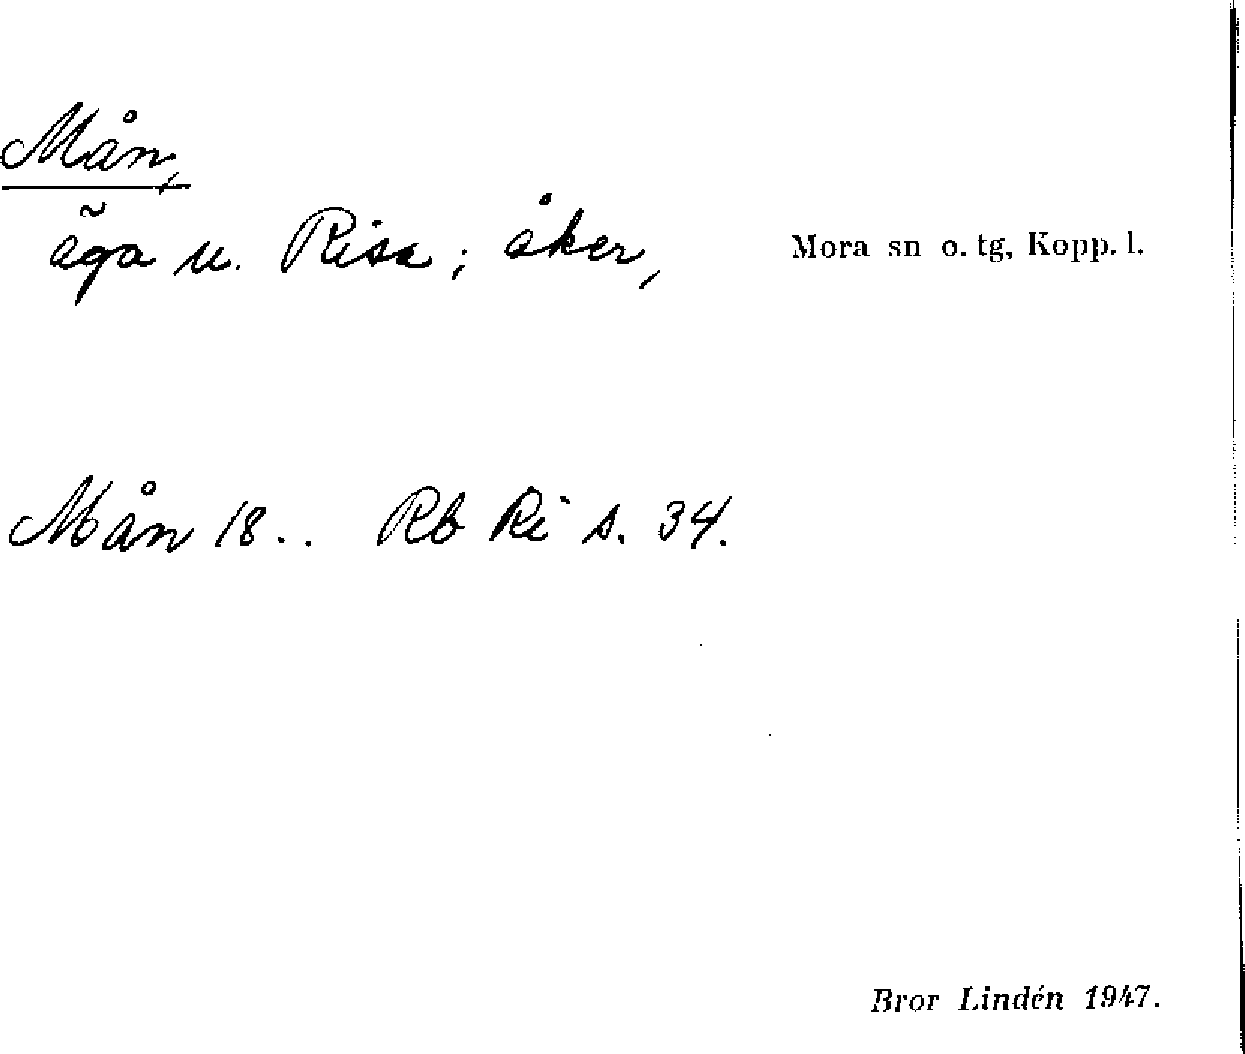 Mån,
äga u. Risa; åker, Mora sn o. tg, Kopp. l.
Mån 18.. Rb Ri s. 34.
Bror Lindén 1947.